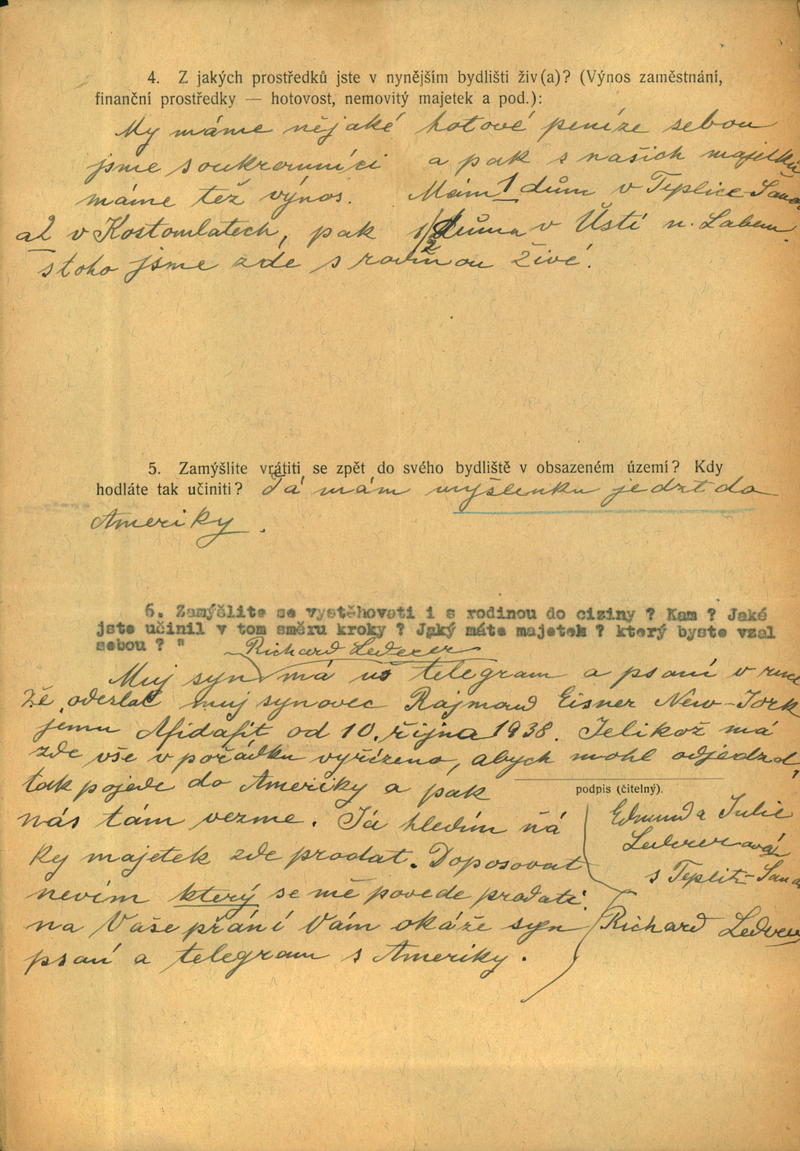 4. Z jakých prostředků jste v nynějším bydlišti živ(a)? (Výnos zaměstnání,
finanční prostředky — hotovost, nemovitý majetek a pod.):
My máme nějaké hotové peníze sebou
jsme soukromníci a pak s našich majetků
máme též výnos. Mám 1 dům v Teplice-Šanov
a 2 v Kostomlatech, pak 1/2 domu v Ústí n. Labem.
s toho jsme zde s rodinou živé.
5. Zamýšlíte vrátiti se zpět do svého bydliště v obsazeném území? Kdy
hodláte tak učiniti? Já mám myšlenku jedzt do
Ameriky.
6. Zamýšlíte se vystěhovati i s rodinou do ciziny ? Kam ? Jaké
jste učinil v tom směru kroky ? Jaký máte majetek ? který byste vzal
sebou ? "
Richard Lederer
Muj syn má uš telegram a psaní v ruce
že odeslal muj synovec Rajmond Eisner New-York
jemu Afidafit od 10. října 1938. Jelikož má
zde vše v pořádku vyřízeno, abych mohl odjedzd,
tak pojede do Ameriky a pak
nás tám vezme. Já hledím ňá
ky majetek zde prodat. Doposovat
nevím který se mě povede prodati.
na Vaše přání Vám okáže syn
psaní a telegram s Ameriky.
podpis (čitelný).
Edmund a Julie
Ledererová
s Teplitz-Šanov
Richard Lederer